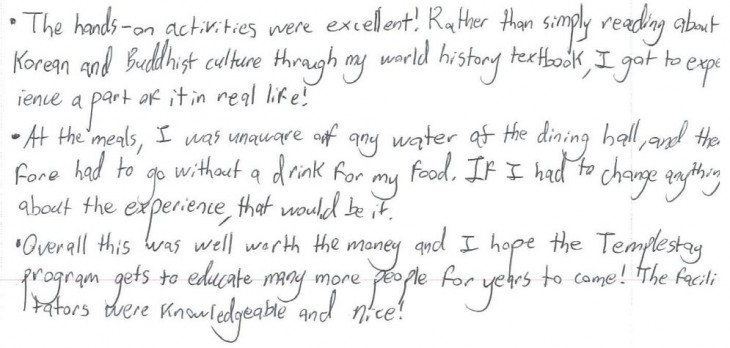 • The hands-on activities were excellent! Rather than simply reading about
Korean and Buddhist culture through my world history textbook, I got to expe
ience a part of it in real life!
• At the meals, I was unaware of any water at the dining hall, and the
fore had to go without a drink for my food. If I had to change anything
about the experience, that would be it.
• Overall this was well worth the money and I hope the Templestay
program gets to educate many more people for years to come! The facili
tators were knowledgeable and nice!